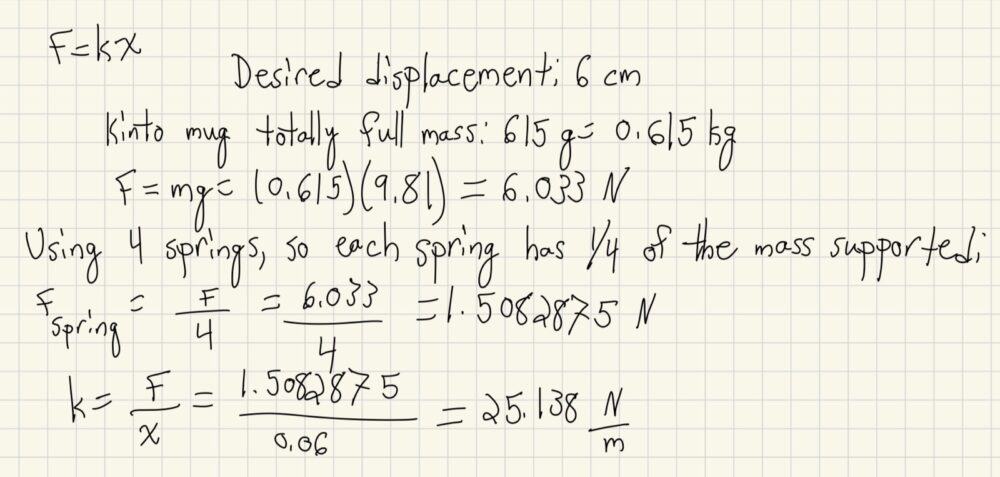 F=kx
Desired displacement: 6 cm
Kinto mug totally full mass: 615 g= 0.615 kg
F=mg= (0.615)(9.81) = 6.033 N
Using 4 springs, so each spring has 1/4 of the mass supported:
F_spring = F/4 = 6.033/4 = 1.5082875 N
k= F/x = 1.5082875/0.06 = 25.138 N/m